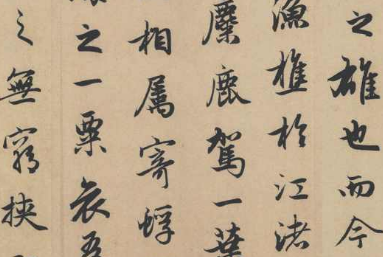 之雄也而今
漁樵於江渚
麋鹿駕一葉
相属寄蜉
之一粟哀吾
之無窮挾